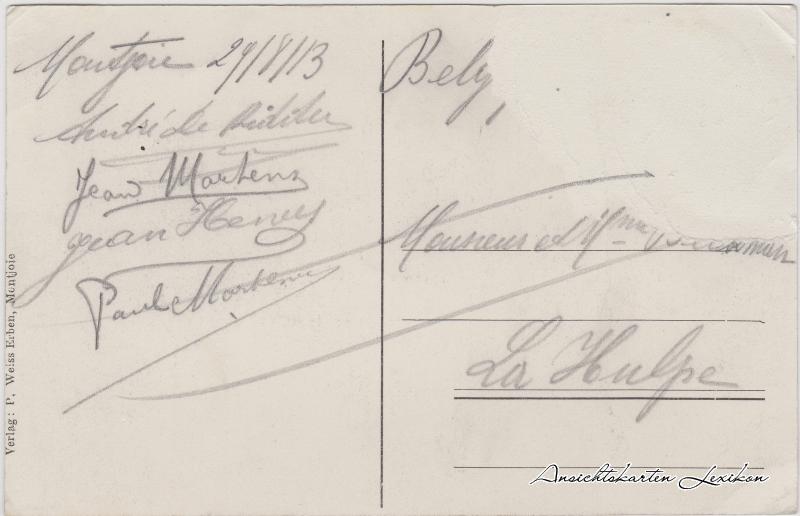 Montjoie 29/8/13
André de Ridder
Jean Martens
Jean Henry
Paul Martens
Belg
Monsieur et Mme
La Hulpe
Verlag: P. Weiss Erben, Montjoie
Ansichtskarten Lexikon